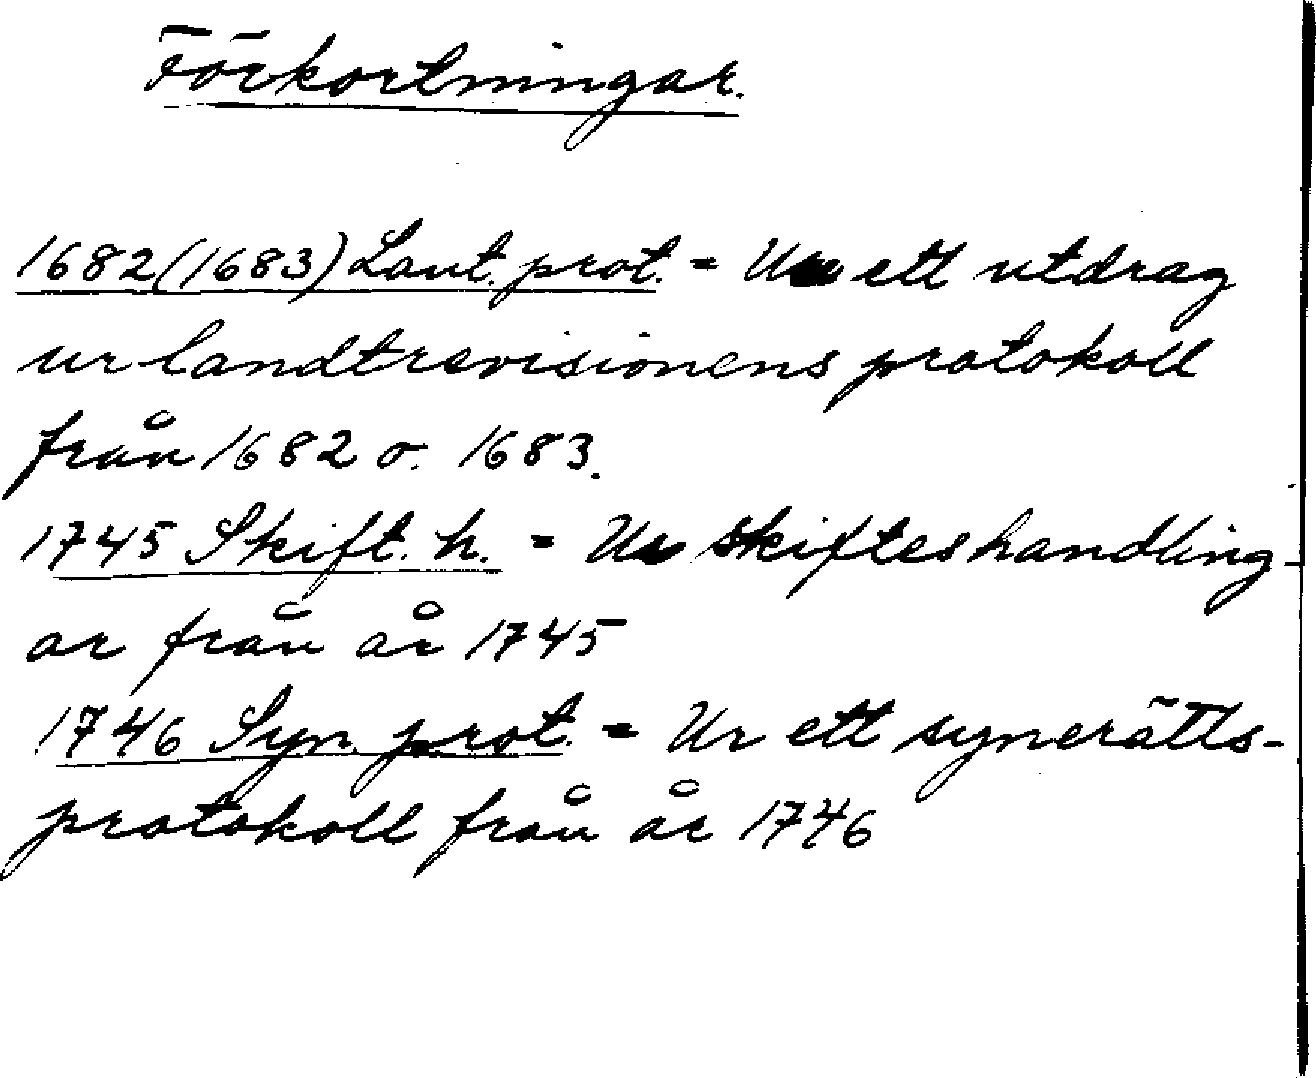 Förkortningar.
1682(1683) Lant. prot. = Ur ett utdrag
ur landtrevisionens protokoll
från 1682 o. 1683.
1745 Skift. h. = Ur skifteshandling-
ar från år 1745
1746 Syn. prot. = Ur ett synerätts-
protokoll från år 1746